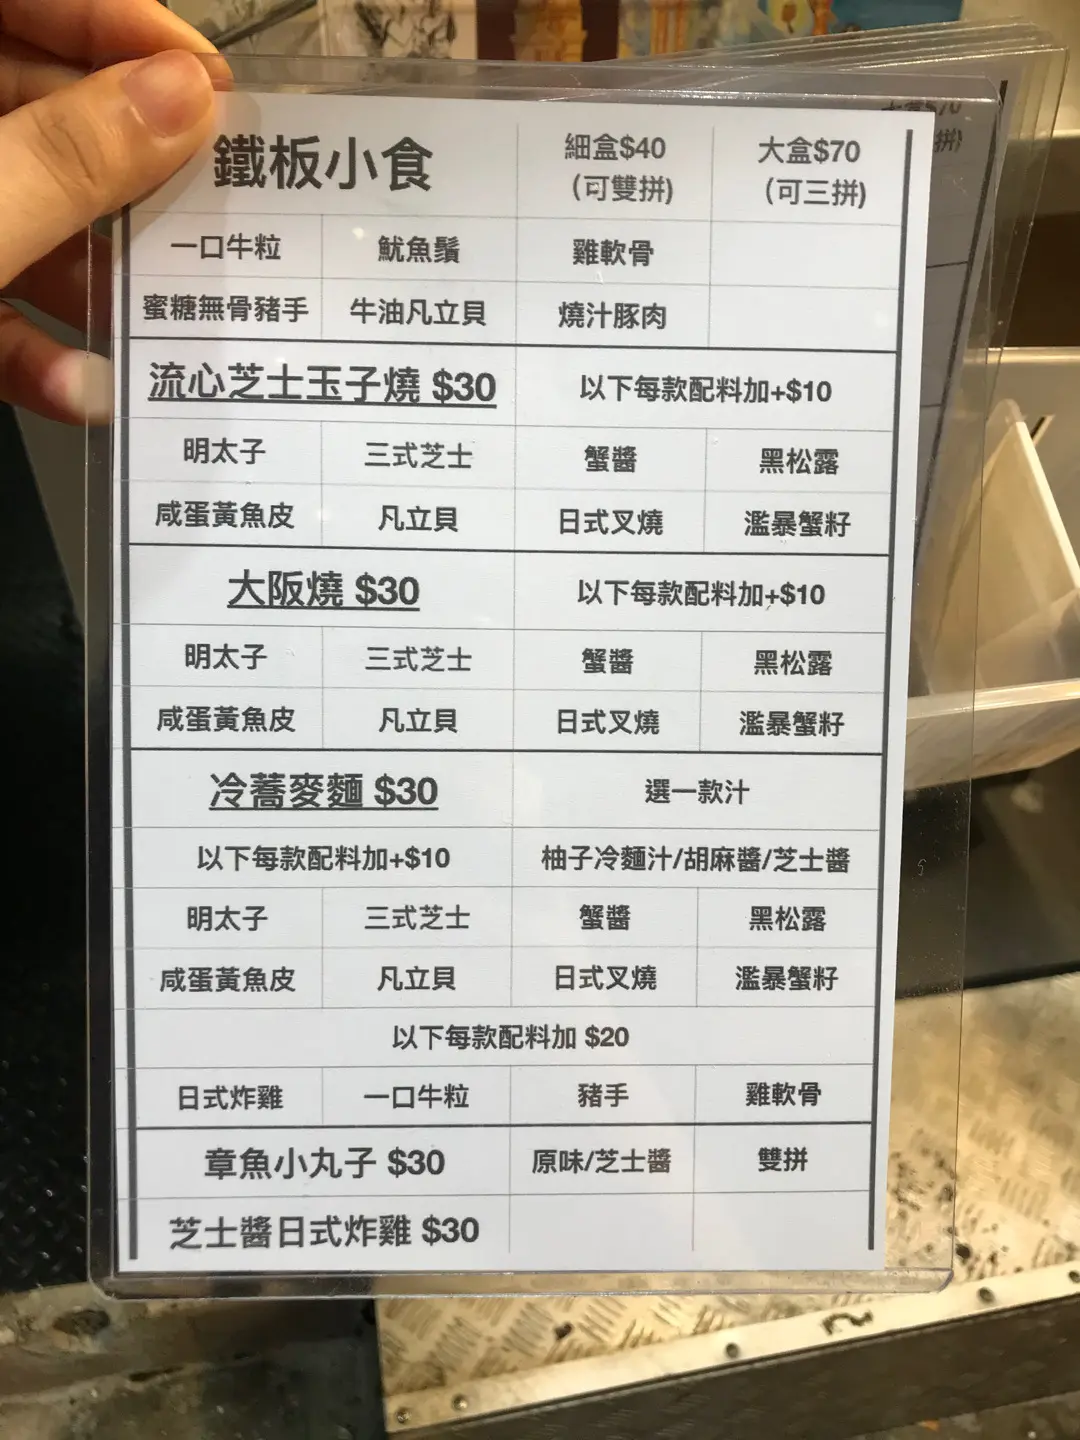 鐵板小食 細盒$40 (可雙拼) 大盒$70 (可三拼)
一口牛粒 魷魚鬚 雞軟骨
蜜糖無骨豬手 牛油凡立貝 燒汁豚肉
流心芝士玉子燒 $30 以下每款配料加+$10
明太子 三式芝士 蟹醬 黑松露
咸蛋黃魚皮 凡立貝 日式叉燒 濫暴蟹籽
大阪燒 $30 以下每款配料加+$10
明太子 三式芝士 蟹醬 黑松露
咸蛋黃魚皮 凡立貝 日式叉燒 濫暴蟹籽
冷蕎麥麵 $30 選一款汁
以下每款配料加+$10 柚子冷麵汁/胡麻醬/芝士醬
明太子 三式芝士 蟹醬 黑松露
咸蛋黃魚皮 凡立貝 日式叉燒 濫暴蟹籽
以下每款配料加 $20
日式炸雞 一口牛粒 豬手 雞軟骨
章魚小丸子 $30 原味/芝士醬 雙拼
芝士醬日式炸雞 $30